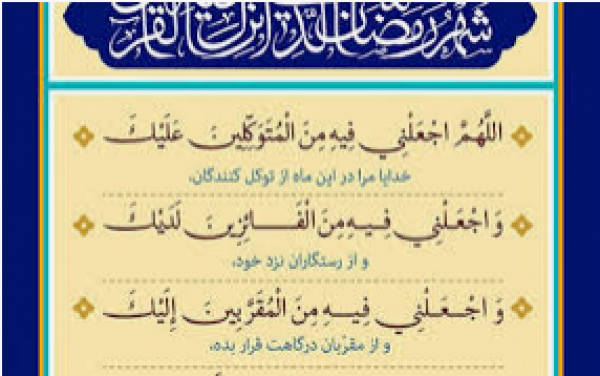 شَهْرُ رَمَضَانَ الَّذِي أُنْزِلَ فِيهِ الْقُرْآنُ
اللَّهُمَّ اجْعَلْنِي فِيهِ مِنَ الْمُتَوَكِّلِينَ عَلَيْكَ
خدایا مرا در این ماه از توکل کنندگان،
وَ اجْعَلْنِي فِيهِ مِنَ الْفَائِزِينَ لَدَيْكَ
و از رستگاران نزد خود،
وَ اجْعَلْنِي فِيهِ مِنَ الْمُقَرَّبِينَ إِلَيْكَ
و از مقرّبان درگاهت قرار بده،